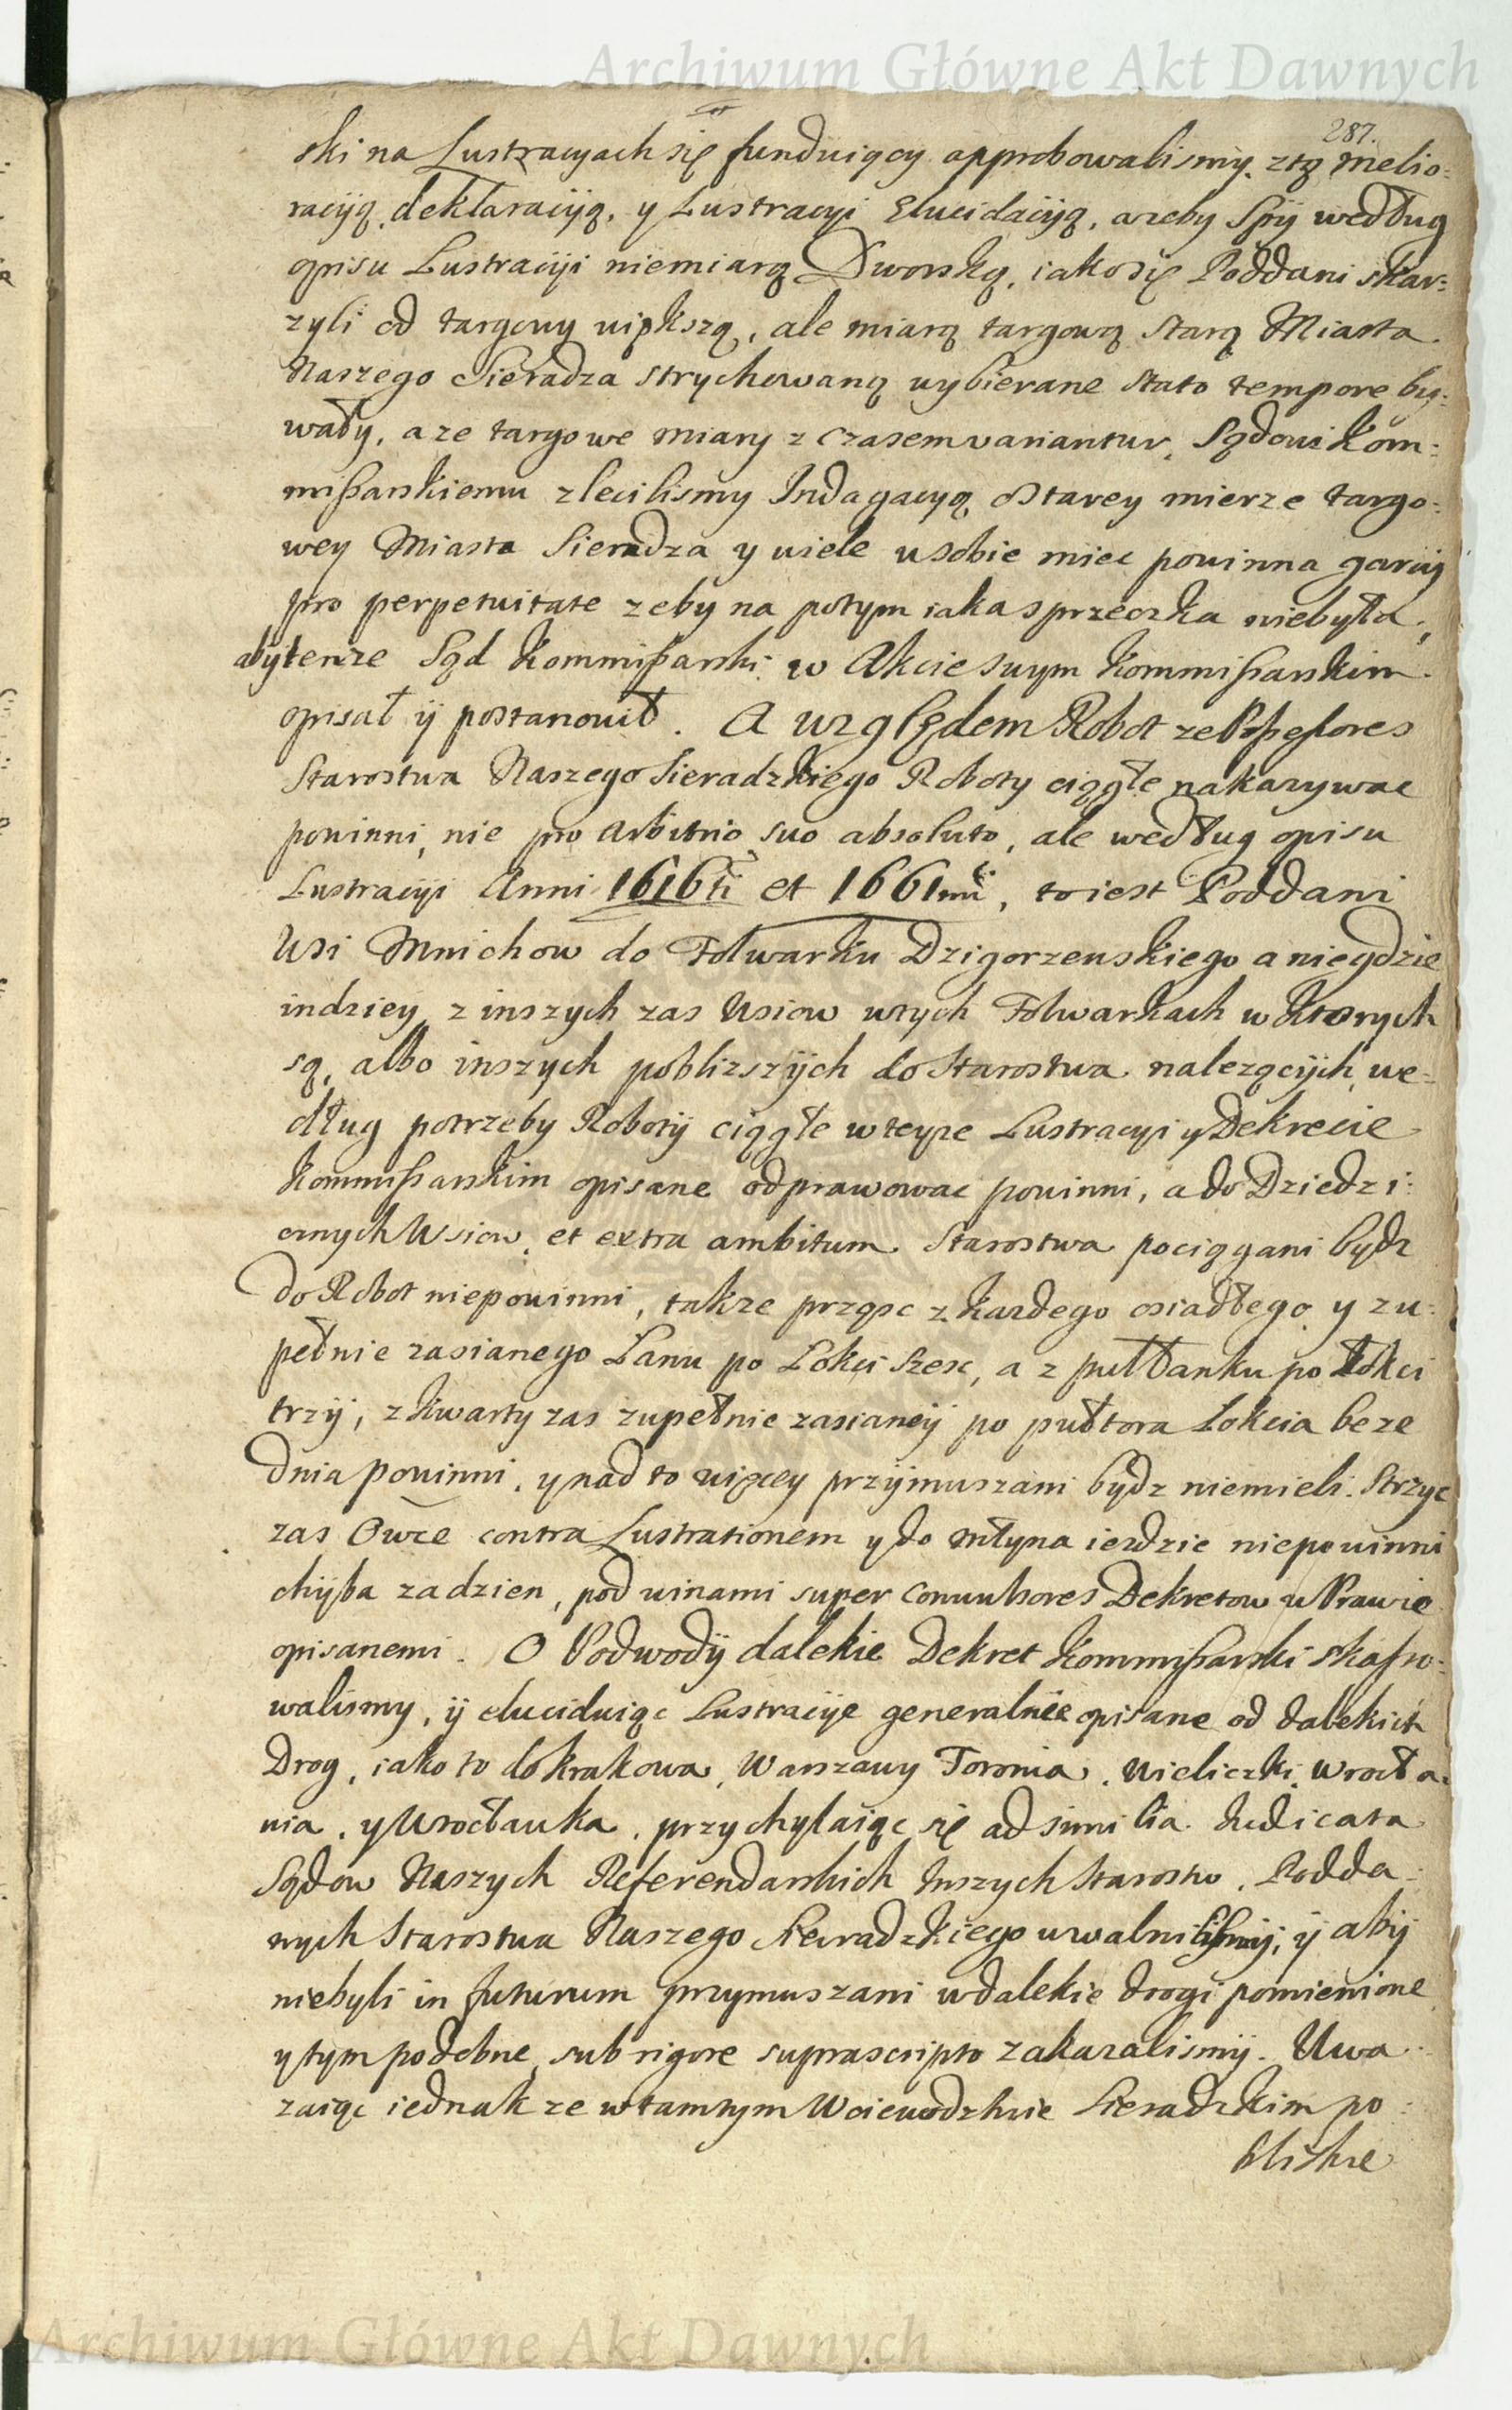 Archiwum Główne Akt Dawnych
287.
ski na Lustracyach się funduiący approbowalismy, z tą melio:
racyią, deklaracyią, y Lustracyi Elucidacyią, azeby Spij według
opisu Lustracyji niemiarą Dworską, iako się Poddani skar:
zyli od targowy większą, ale miarą targową starą Miasta
Naszego Sieradza strychowaną wybierane stato tempore by:
wały, a ze targowe miary z czasem variantur, Sądowi Kom:
mißarskiemu zlecilismy Indagacyą o starey mierze targo:
wey Miasta Sieradza y wiele w sobie miec powinna garcy
pro perpetuitate zeby na potym iaka sprzeczka niebyła,
abytenze Sąd Kommißarski w Akcie swym Kommißarskim
opisał ij postanowił. A względem Robot ze Poßeßores
Starostwa Naszego Sieradzkiego Roboty ciągłe nakazywac
powinni, nie pro arbitrio suo absoluto, ale według opisu
Lustracyi Anni 1616ti et 1661mi, to iest Poddani
Wsi Mnichow do Folwarku Dzigorzewskiego a niegdzie
indziey, z inszych zas Wsiow w tych Folwarkach w ktorych
są, albo inszych poblizszych do Starostwa nalezących, we:
dług potrzeby Roboty ciągłe w teyze Lustracyi y Dekrecie
Kommißarskim opisane odprawowac powinni, a do Dziedzi:
cznych Wsiow, et extra ambitum Starostwa pociągani bydz
do Robot niepowinni, takze prząsc z kazdego osiadłego y zu:
pełnie zasianego Łanu po Łokci szesc, a z pułłanku po Łokci
trzy, z kwarty zas zupełnie zasianey po pułtora Łokcia beze
dnia powinni, y nad to więcey przymuszani bydz niemieli. Strzyc
zas Owce contra Lustrationem y do młyna iezdzic niepowinni
chyba za dzien, pod winami super convulsores Dekretow w Prawie
opisanemi. O Podwody dalekie Dekret Kommißarski skaßo:
walismy, ij eluciduiąc Lustracyie generalnie opisane od dalekich
Drog, iako to do Krakowa, Warszawy Torunia, Wieliczki, Wrocła:
wia, y Wrocławka, przychylaiąc się ad similia Iudicata
Sądow Naszych Referendarskich Inszych Starostw, Podda:
nych Starostwa Naszego Sieradzkiego uwalnilismy, ij aby
niebyli in futurum przymuszani w dalekie drogi pomienione
y tym podobne, sub rigore suprascripto zakazalismy. Uwa:
zaiąc iednak ze w tamtym Woiewodztwie Sieradzkim po:
bliskie
Archiwum Główne Akt Dawnych